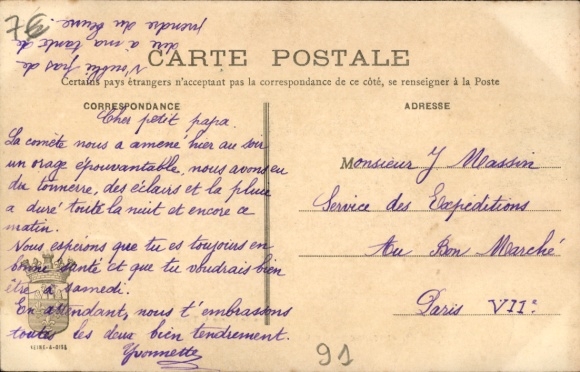 76
N'oublie pas de
dire a ma tante de
prendre du beurre.
CARTE POSTALE
Certains pays étrangers n'acceptant pas la correspondance de ce côté, se renseigner à la Poste
CORRESPONDANCE
Cher petit papa.
La comète nous a amené hier au soir
un orage épouvantable, nous avons eu
du tonnerre, des éclairs et la pluie
a duré toute la nuit et encore ce
matin.
Nous espérons que tu es toujours en
bonne santé et que tu voudrais bien
être à samedi.
En attendant, nous t'embrassons
toutes les deux bien tendrement.
Yvonnette
SEINE-&-OISE
ADRESSE
Monsieur J Massin
Service des Expéditions
Au Bon Marché
Paris VIIe
91